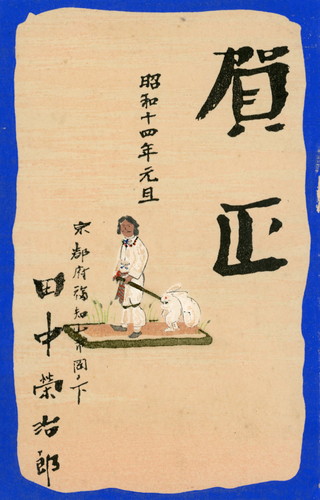 賀正
昭和十四年元旦
京都府福知山市岡ノ下
田中榮治郎